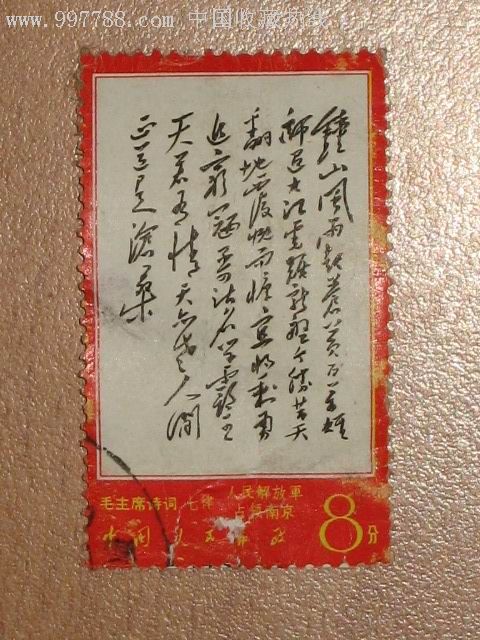 www.997788.com 中国收藏热线
鐘山風雨起蒼黃百万雄
師過大江虎踞龍盤今勝昔天
翻地覆慨而慷宜將剩勇
追窮寇不可沽名学霸王
天若有情天亦老人間
正道是滄桑
毛主席诗词 七律 人民解放軍
占领南京
中国人民邮政 8分